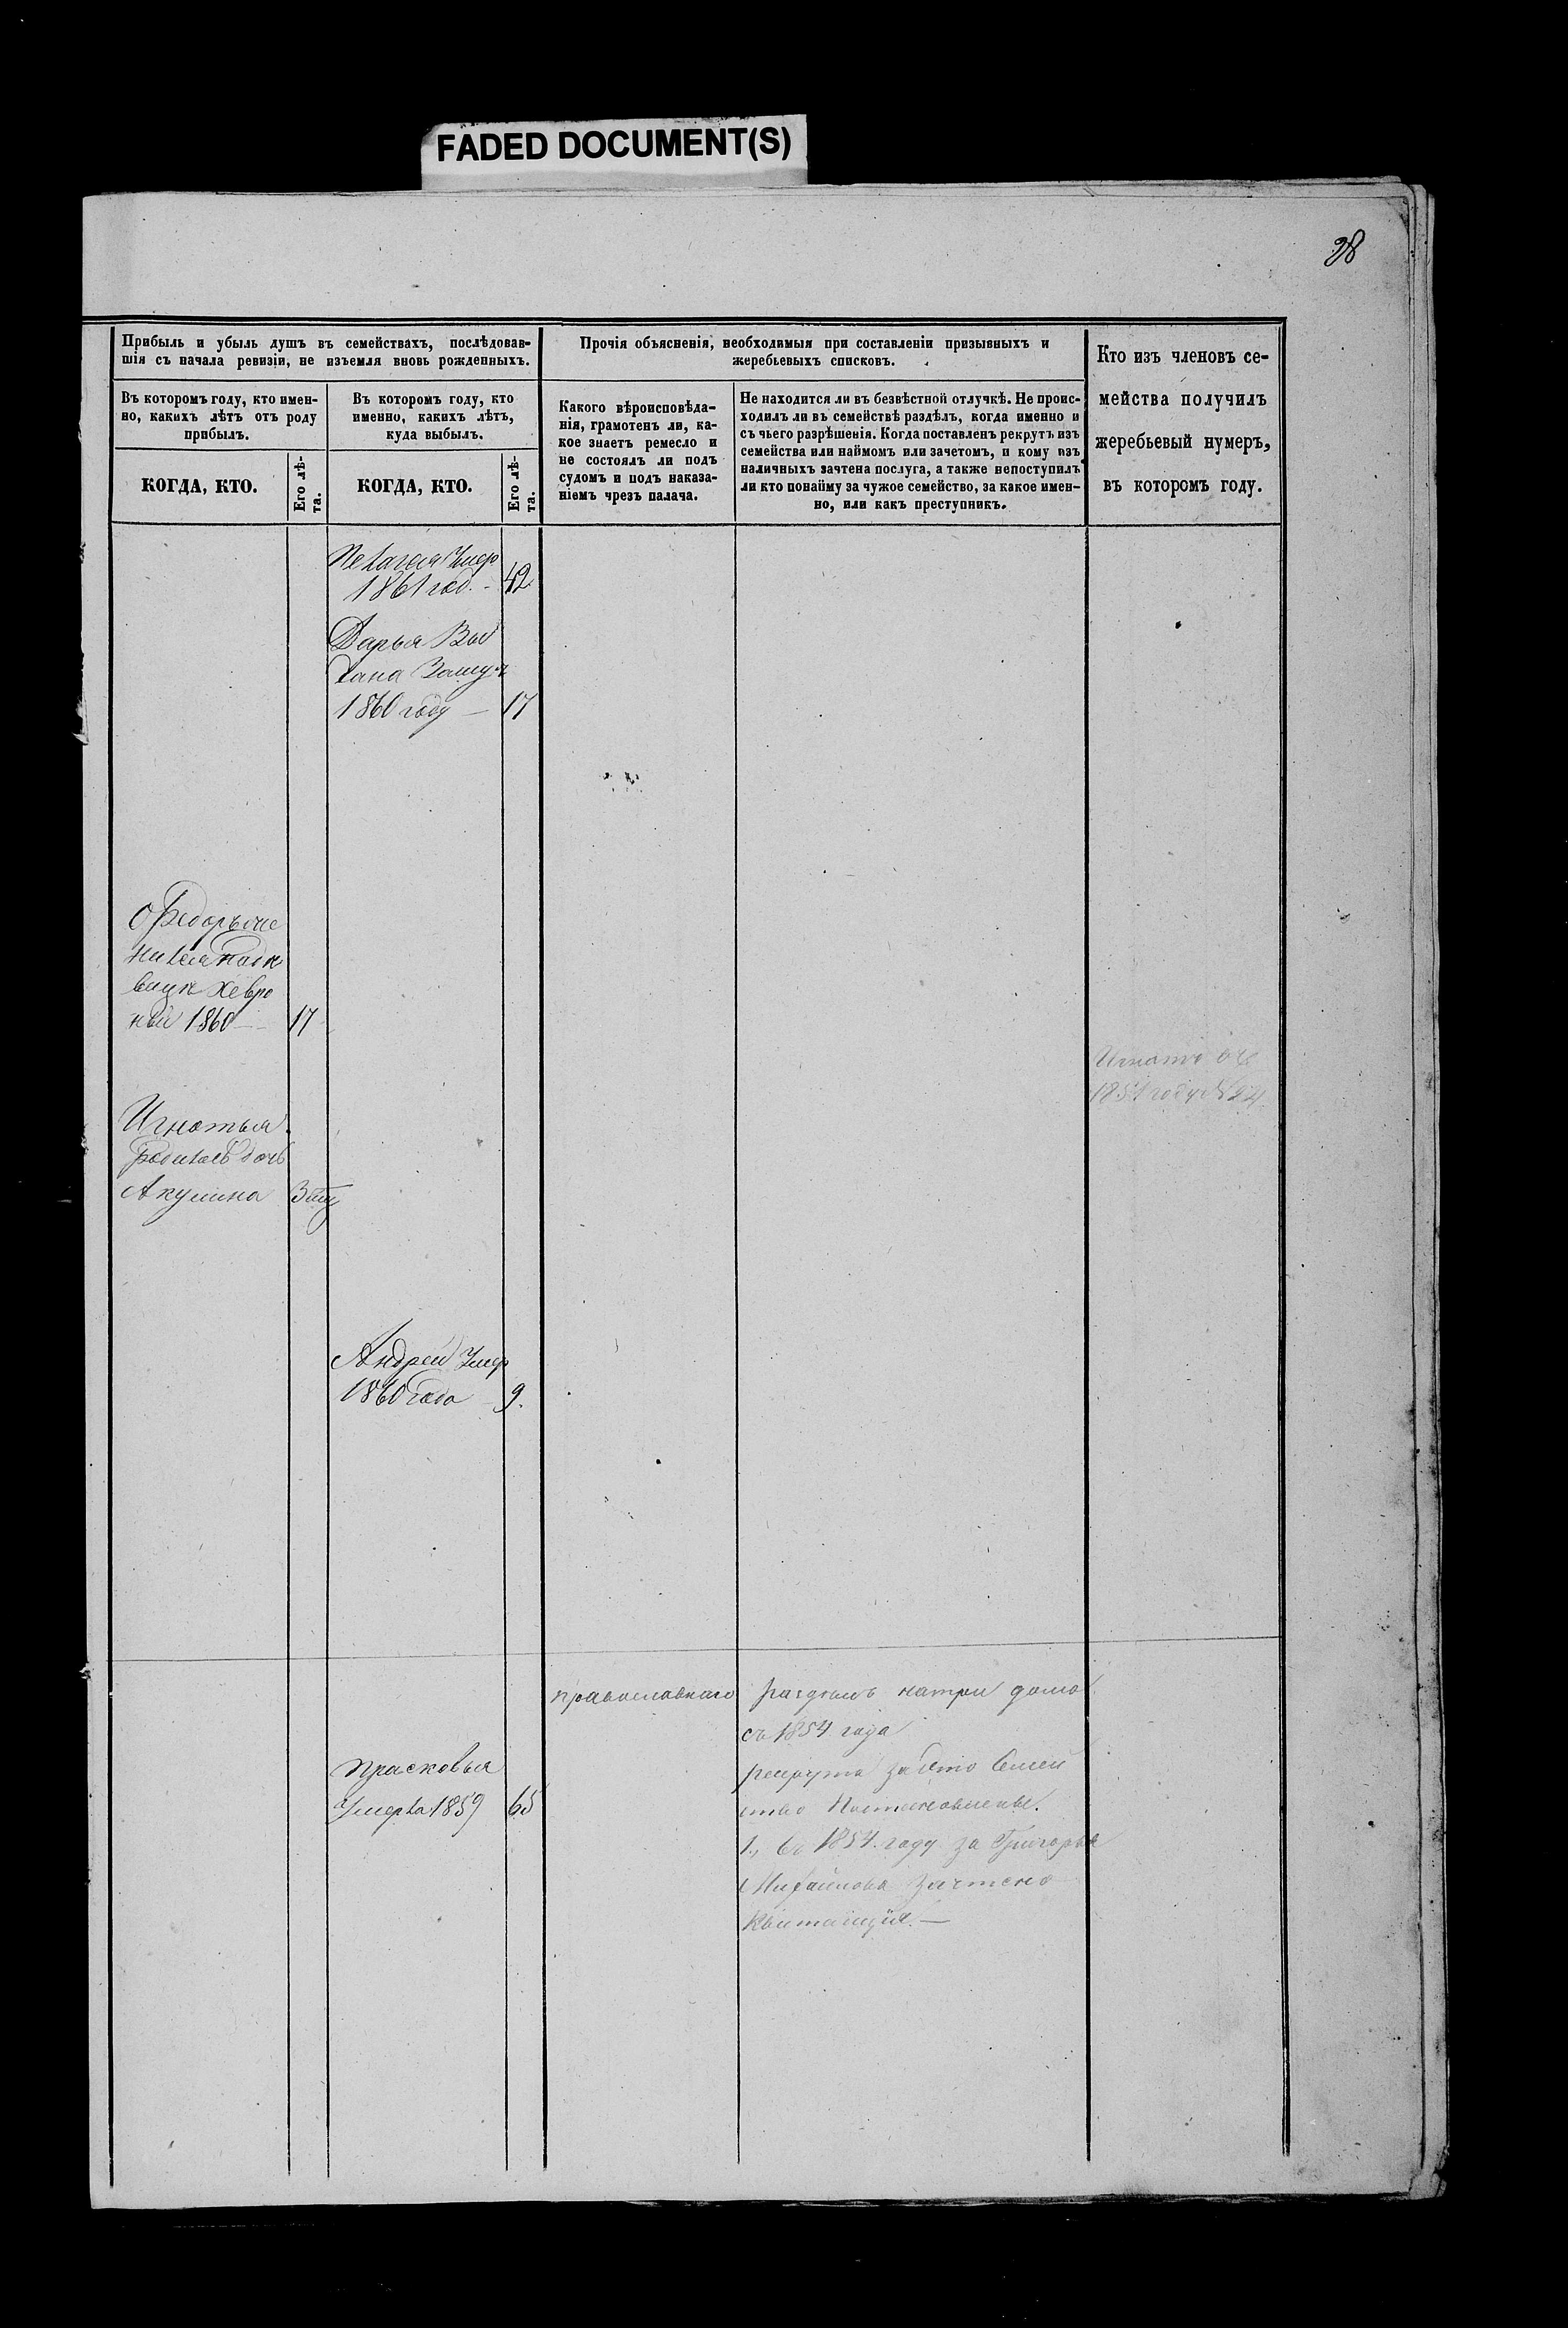 FADED DOCUMENT(S)
38
Прибыль и убыль душъ въ семействахъ, послѣдовав-
шія съ начала ревизіи, не изъемля вновь рожденныхъ.
Прочія объясненія, необходимыя при составленіи призывныхъ и
жеребьевыхъ списковъ.
Кто изъ членовъ се-
мейства получилъ
жеребьевый нумеръ,
въ которомъ году.
Въ которомъ году, кто имен-
но, какихъ лѣтъ отъ роду
прибылъ.
Въ которомъ году, кто
именно, какихъ лѣтъ,
куда выбылъ.
Какого вѣроисповѣда-
нія, грамотенъ ли, ка-
кое знаетъ ремесло и
не состоялъ ли подъ
судомъ и подъ наказа-
ніемъ чрезъ палача.
Не находится ли въ безвѣстной отлучкѣ. Не проис-
ходилъ ли въ семействѣ раздѣлъ, когда именно и
съ чьего разрѣшенія. Когда поставленъ рекрутъ изъ
семейства или наймомъ или зачетомъ, и кому изъ
наличныхъ зачтена послуга, а также непоступилъ
ли кто понайму за чужое семейство, за какое имен-
но, или какъ преступникъ.
КОГДА, КТО.
Его лѣ-
та.
КОГДА, КТО.
Его лѣ-
та.
Пелагея Умер
1861 год. - 42
Дарья Выд
дана Замуж
1860 году — 17
Федоръ же
1860 — 17
Игнатья
Родилась дочь
Акулина
1851 году № 24
Андрей Умер
1860 года 9.
православнаго
раздѣлъ натри дома
съ 1854 года
Прасковья
Умерла 1859 65
рекрута за это Семей
ство
1., во 1854. году за Григорья
Михайлова Зачтено
Квитанція. —